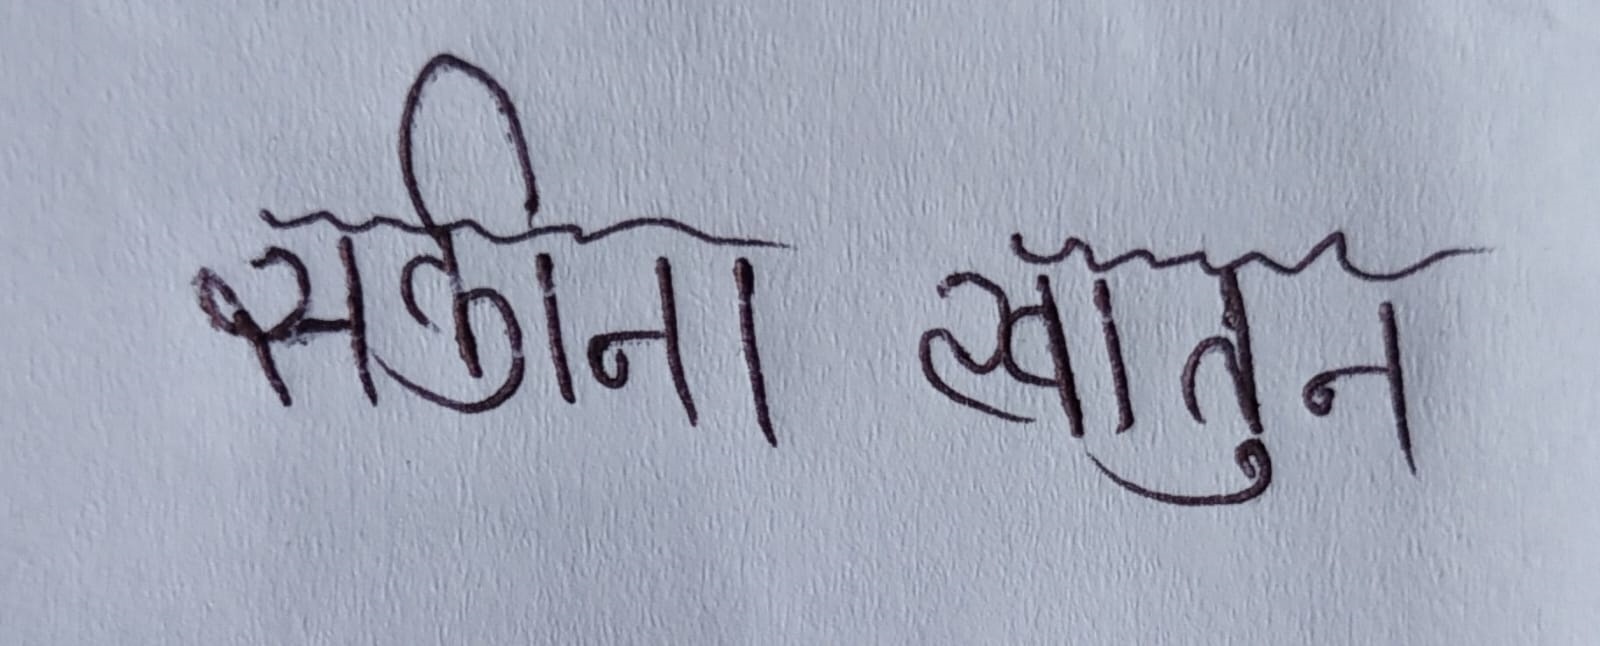 सकीना खातुन